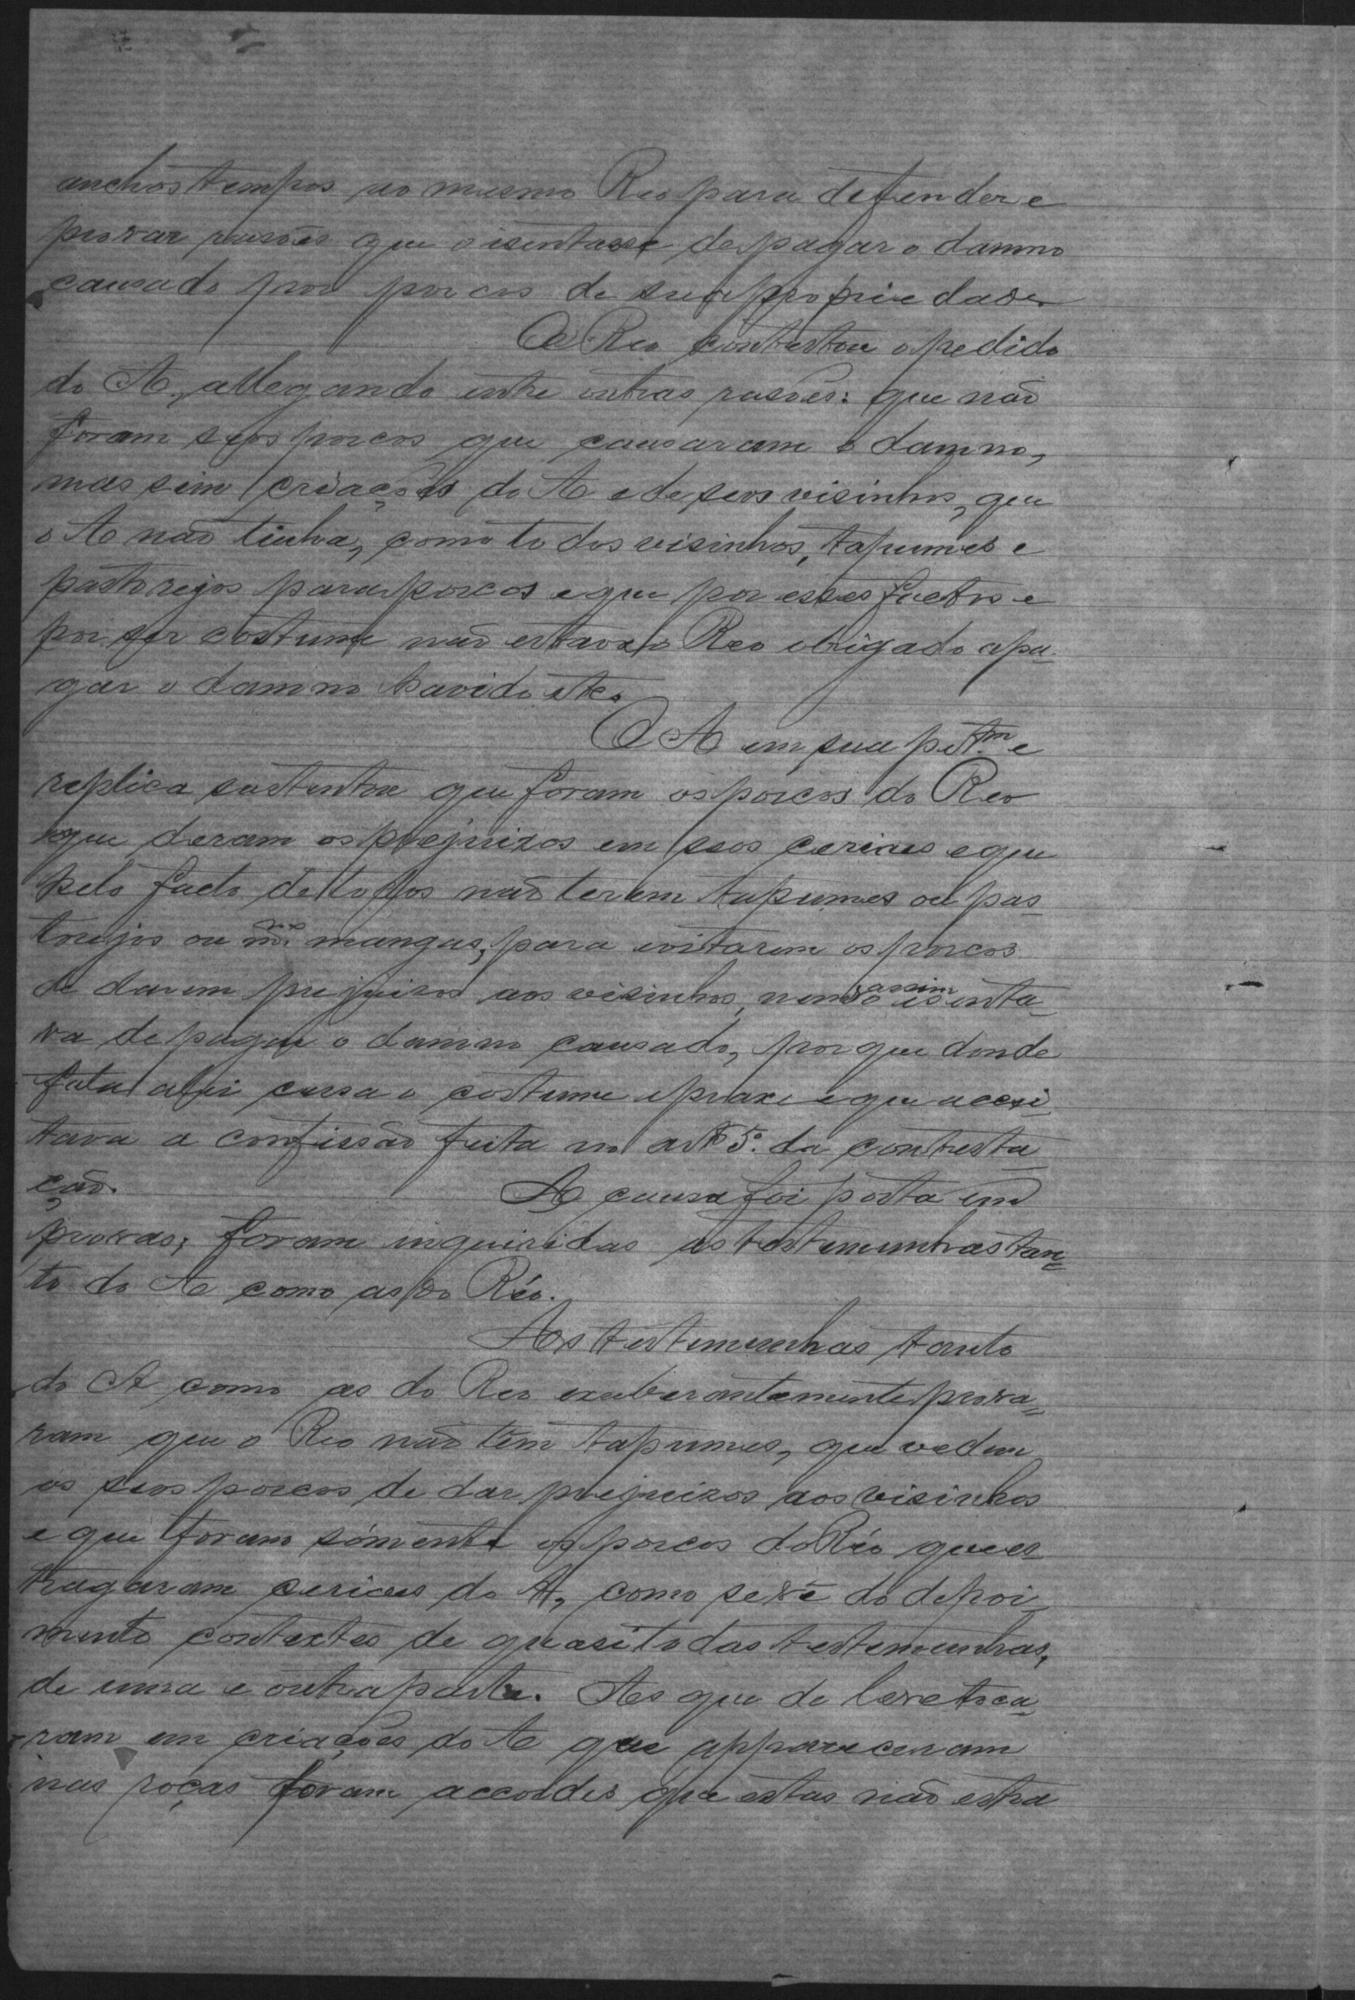 anchos tempos ao mesmo Reo para defender e
provar rasões que o isentasse de pagar o damno
causado por porcos de sua propriedade.
O Reo contestou o pedido
do A, allegando entre outras rasões: que não
foram seos porcos que causaram o damno,
mas sim criações do A e de seos visinhos, que
o A não tinha, como todos visinhos, tapumes e
pastorejos para porcos e que por esses factos e
por ser costume não estava o Reo obrigado a pa-
gar o damno havido etc.
O A em sua pet.m e
replica sustentou que foram os porcos do Reo
que deram os prejuizos em seos ceriaes e que
pelo facto de todos não terem tapumes ou pas-
torejos ou mangas, para evitarem os porcos
de darem prejuizos aos visinhos, nem assim o isenta-
va de pagar o damno causado, por que donde
falta a lei cessa o costume e praxe e que accei-
tava a confissão feita no artº 5º da contesta-
ção. A causa foi posta em
provas; foram inquiridas as testemunhas tan-
to do A como as do Réo.
As testemunhas tanto
do A como as do Reo exuberantemente prova-
ram que o Reo não têm tapumes, que vedem
os seos porcos de dar prejuizos aos visinhos
e que foram sómente os porcos do Réo que es-
tragaram ceriaes do A, como se vê do depoi-
mento contestes de quasi todas testemunhas,
de uma e outra parte. As que de leve toca-
ram em criações do A que appareceram
nas roças foram accordes que estas não estra